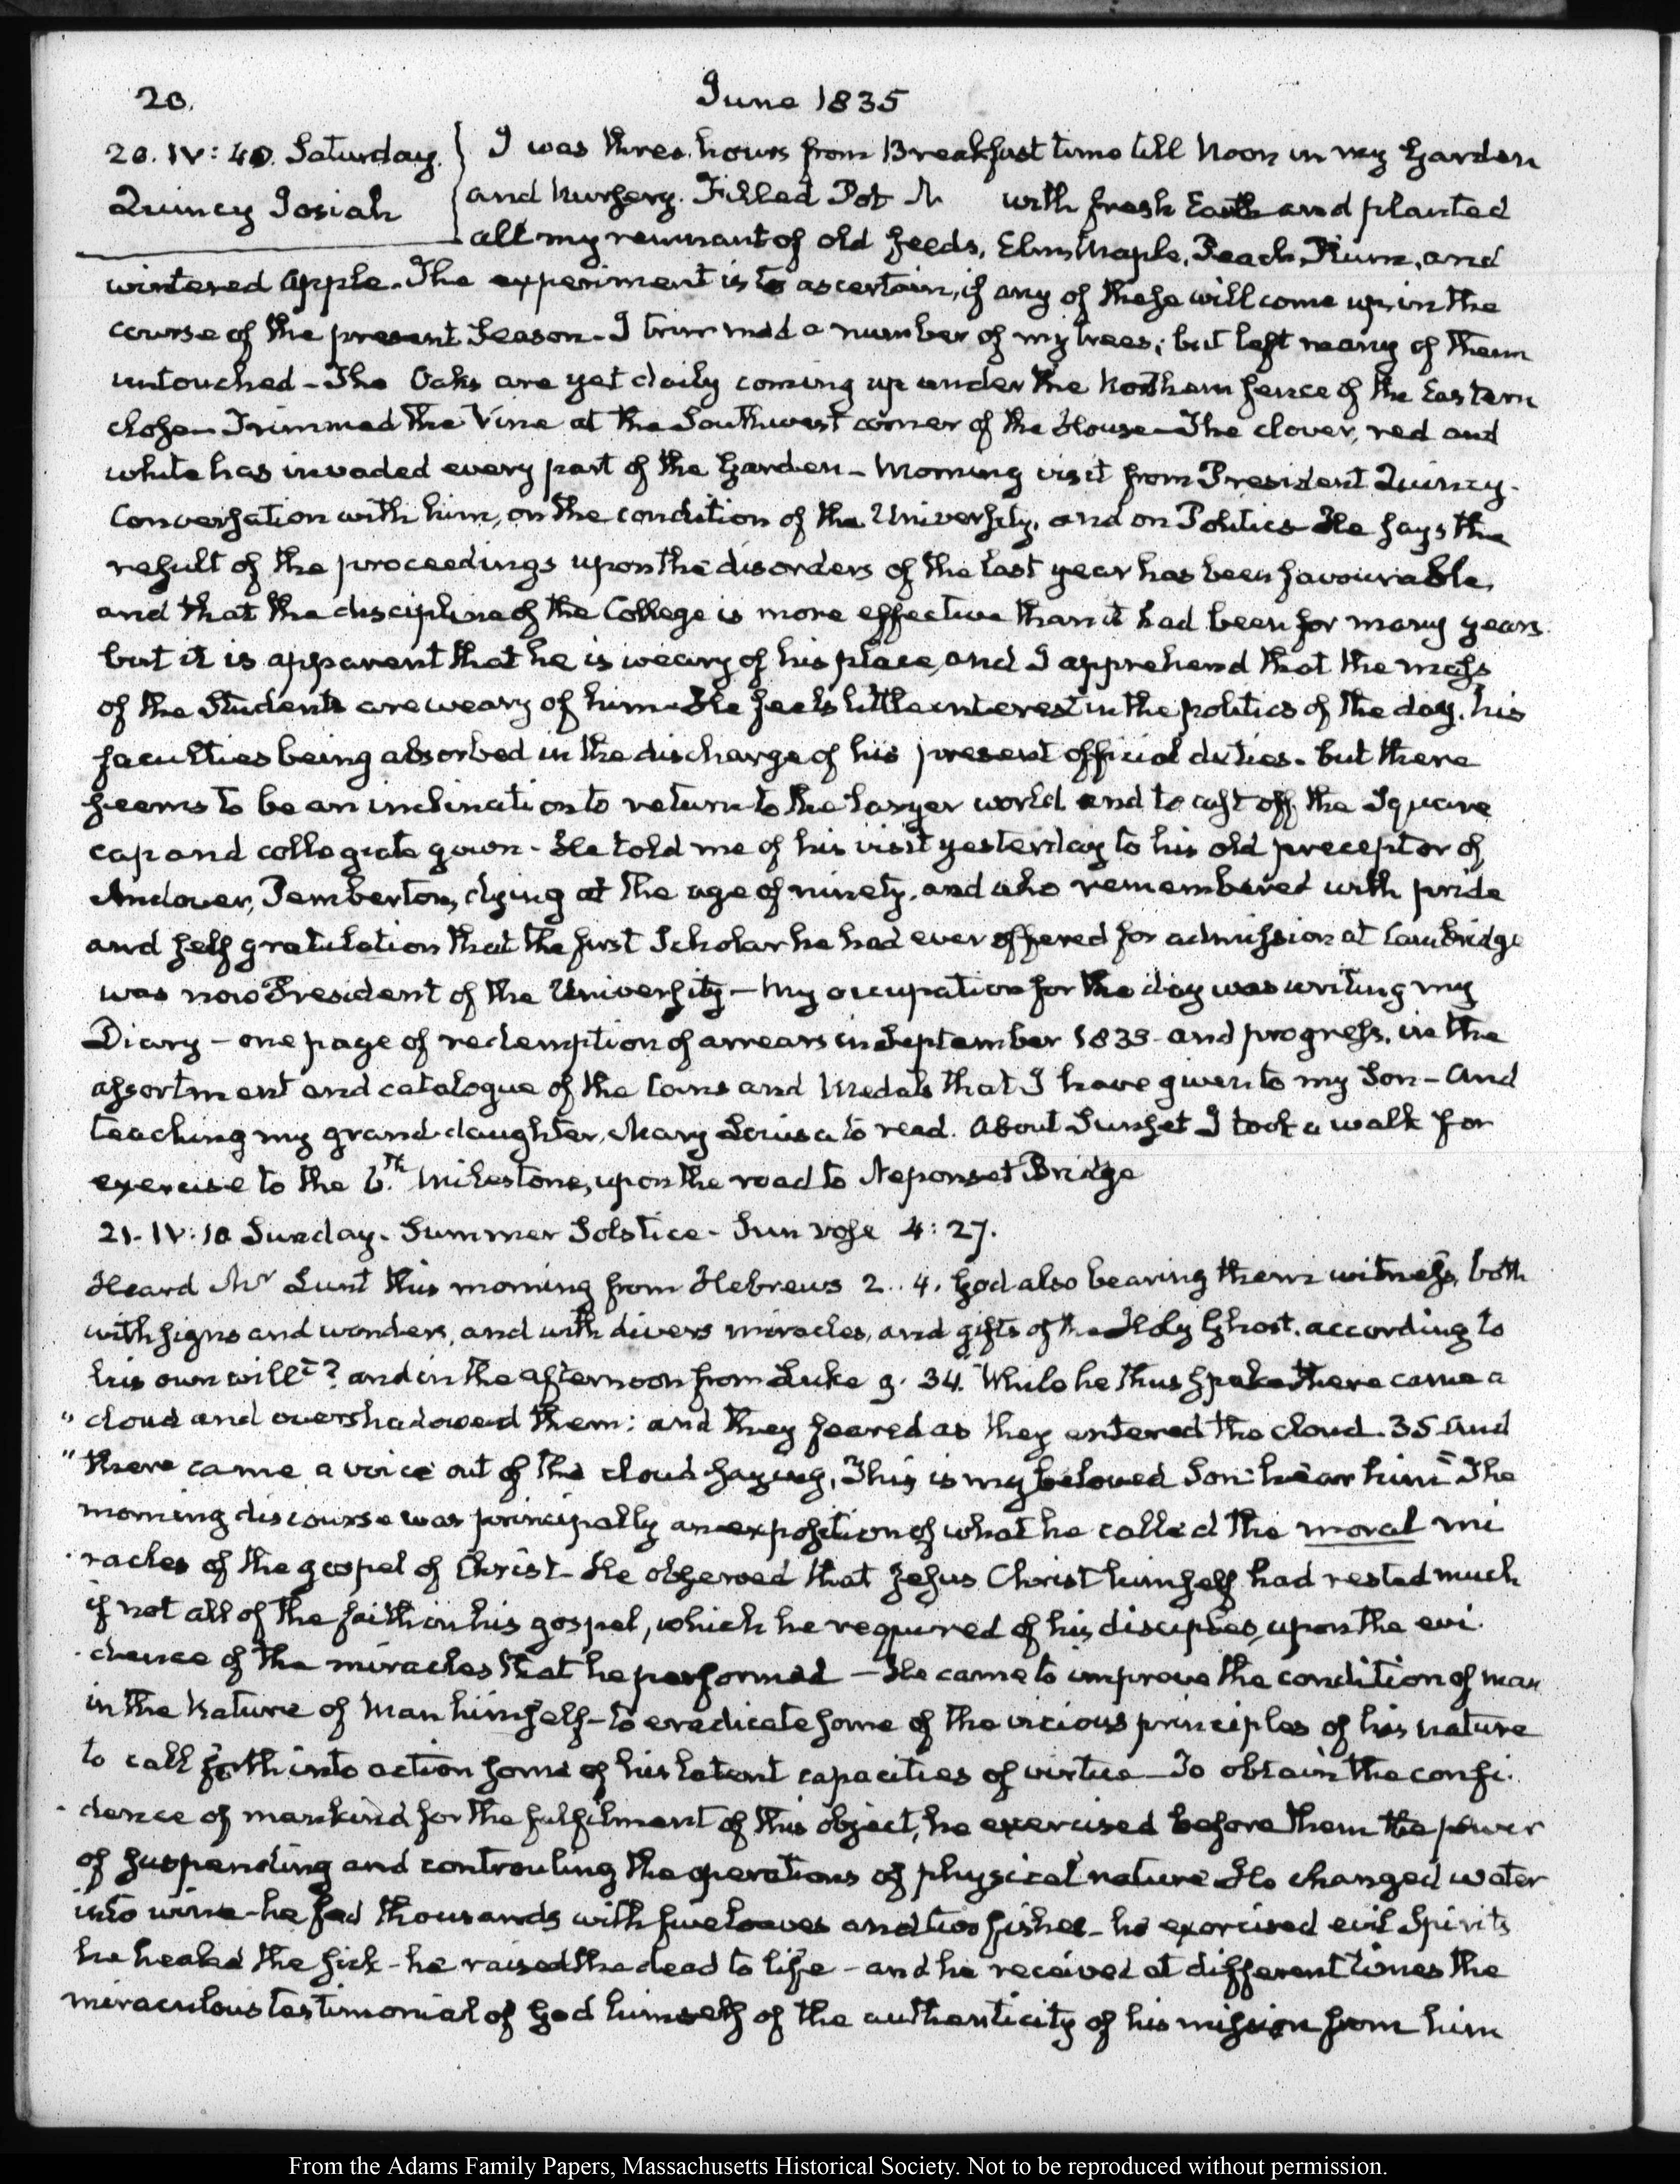 20.
June 1835
20. IV: 40. Saturday.
Quincy Josiah
I was three hours from Breakfast time till Noon in my Garden
and Nursery. Filled Pot N with fresh Earth and planted
all my remnant of old seeds, Elm, Maple, Peach, Plum, and
wintered Apple. The experiment is to ascertain, if any of these will come up in the
course of the present Season - I trimmed a number of my trees; but left many of them
untouched - The Oaks are yet daily coming up under the Northern fence of the Eastern
close - Trimmed the Vine at the Southwest corner of the House - The clover, red and
white has invaded every part of the Garden - Morning visit from President Quincy.
Conversation with him, on the condition of the University, and on Politics - He says the
result of the proceedings upon the disorders of the last year has been favourable,
and that the discipline of the College is more effective than it had been for many years.
but it is apparent that he is weary of his place, and I apprehend that the mass
of the Students are weary of him - He feels little interest in the politics of the day, his
faculties being absorbed in the discharge of his present official duties - but there
seems to be an inclination to return to the larger world and to cast off the Square
cap and collegiate gown - He told me of his visit yesterday to his old preceptor of
Andover, Pemberton, dying at the age of ninety, and who remembered with pride
and self gratulation that the first Scholar he had ever offered for admission at Cambridge
was now President of the University - My occupation for the day was writing my
Diary - one page of redemption of arrears in September 1833 - and progress, in the
assortment and catalogue of the Coins and Medals that I have given to my Son - And
teaching my grand-daughter, Mary Louisa to read. About Sunset I took a walk for
exercise to the 6.th Milestone, upon the road to Neponset Bridge
21. IV: 10 Sunday. Summer Solstice - Sun rose 4: 27.
Heard Mr Lunt this morning from Hebrews 2. 4. God also bearing them witness, both
with signs and wonders, and with divers miracles, and gifts of the Holy Ghost, according to
his own will"? and in the afternoon from Luke 9. 34. "While he thus spake there came a
" cloud and overshadowed them: and they feared as they entered the cloud. 35 And
" there came a voice out of the cloud saying, This is my beloved Son: hear him" The
morning discourse was principally an exposition of what he called the moral mi
racles of the gospel of Christ - He observed that Jesus Christ himself had rested much
if not all of the faith in his gospel, which he required of his disciples, upon the evi-
-dence of the miracles that he performed - He came to improve the condition of man
in the Nature of Man himself - to eradicate some of the vicious principles of his nature
to call forth into action some of his latent capacities of virtue - To obtain the confi-
-dence of mankind for the fulfilment of this object, he exercised before them the power
of suspending and controuling the operations of physical nature He changed water
into wine - he fed thousands with five loaves and two fishes - he exorcised evil Spirits
he healed the sick - he raised the dead to life - and he received at different times the
miraculous testimonial of God himself of the authenticity of his mission from him
From the Adams Family Papers, Massachusetts Historical Society. Not to be reproduced without permission.